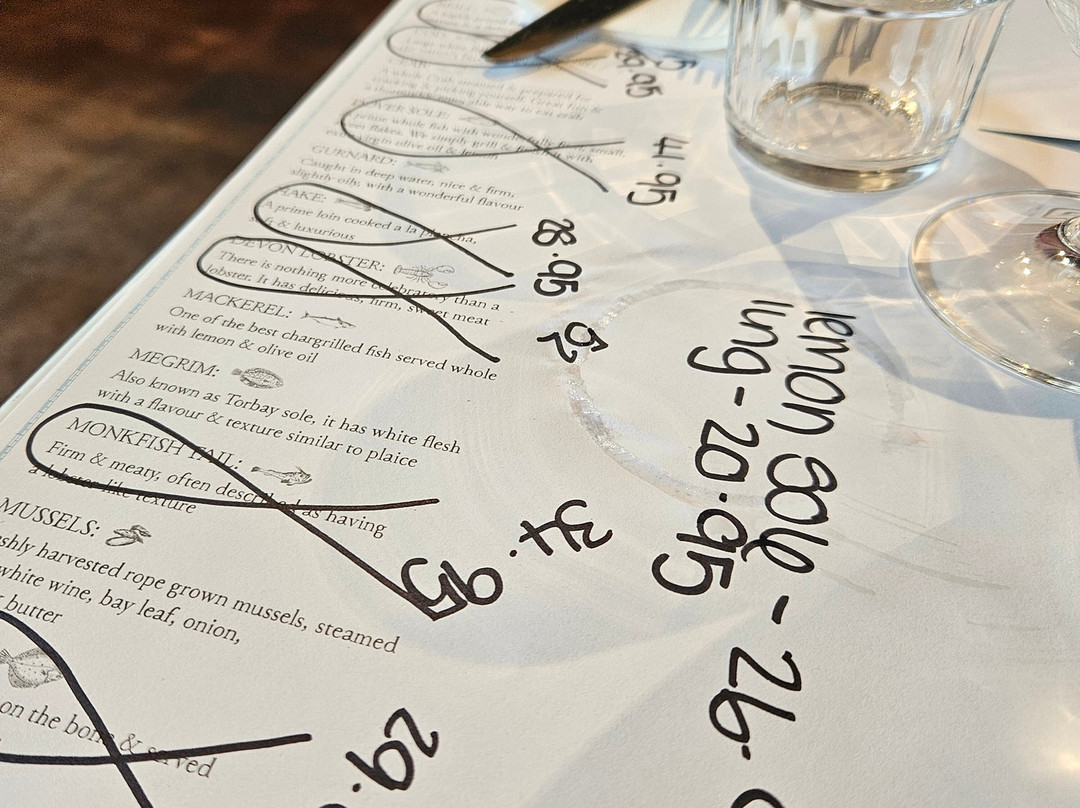 CRAB:
A whole Crab steamed & prepared for
cracking & picking yourself. Great fun &
29.95
DOVER SOLE:
prime whole fish with wonderfully fresh, small,
flakes. We simply grill & finish it with
extra virgin olive oil & lemon
41.95
GURNARD:
Caught in deep water, nice & firm,
slightly oily, with a wonderful flavour
HAKE:
A prime loin cooked a la plancha,
soft & luxurious
28.95
DEVON LOBSTER:
There is nothing more celebratory than a
lobster. It has delicious, firm, sweet meat
52
MACKEREL:
One of the best chargrilled fish served whole
with lemon & olive oil
MEGRIM:
Also known as Torbay sole, it has white flesh
with a flavour & texture similar to plaice
MONKFISH TAIL:
Firm & meaty, often described as having
a lobster like texture
34.
95
MUSSELS:
shly harvested rope grown mussels, steamed
white wine, bay leaf, onion,
butter
on the bone & served
29.
lemon sole - 26.
ling - 20.95